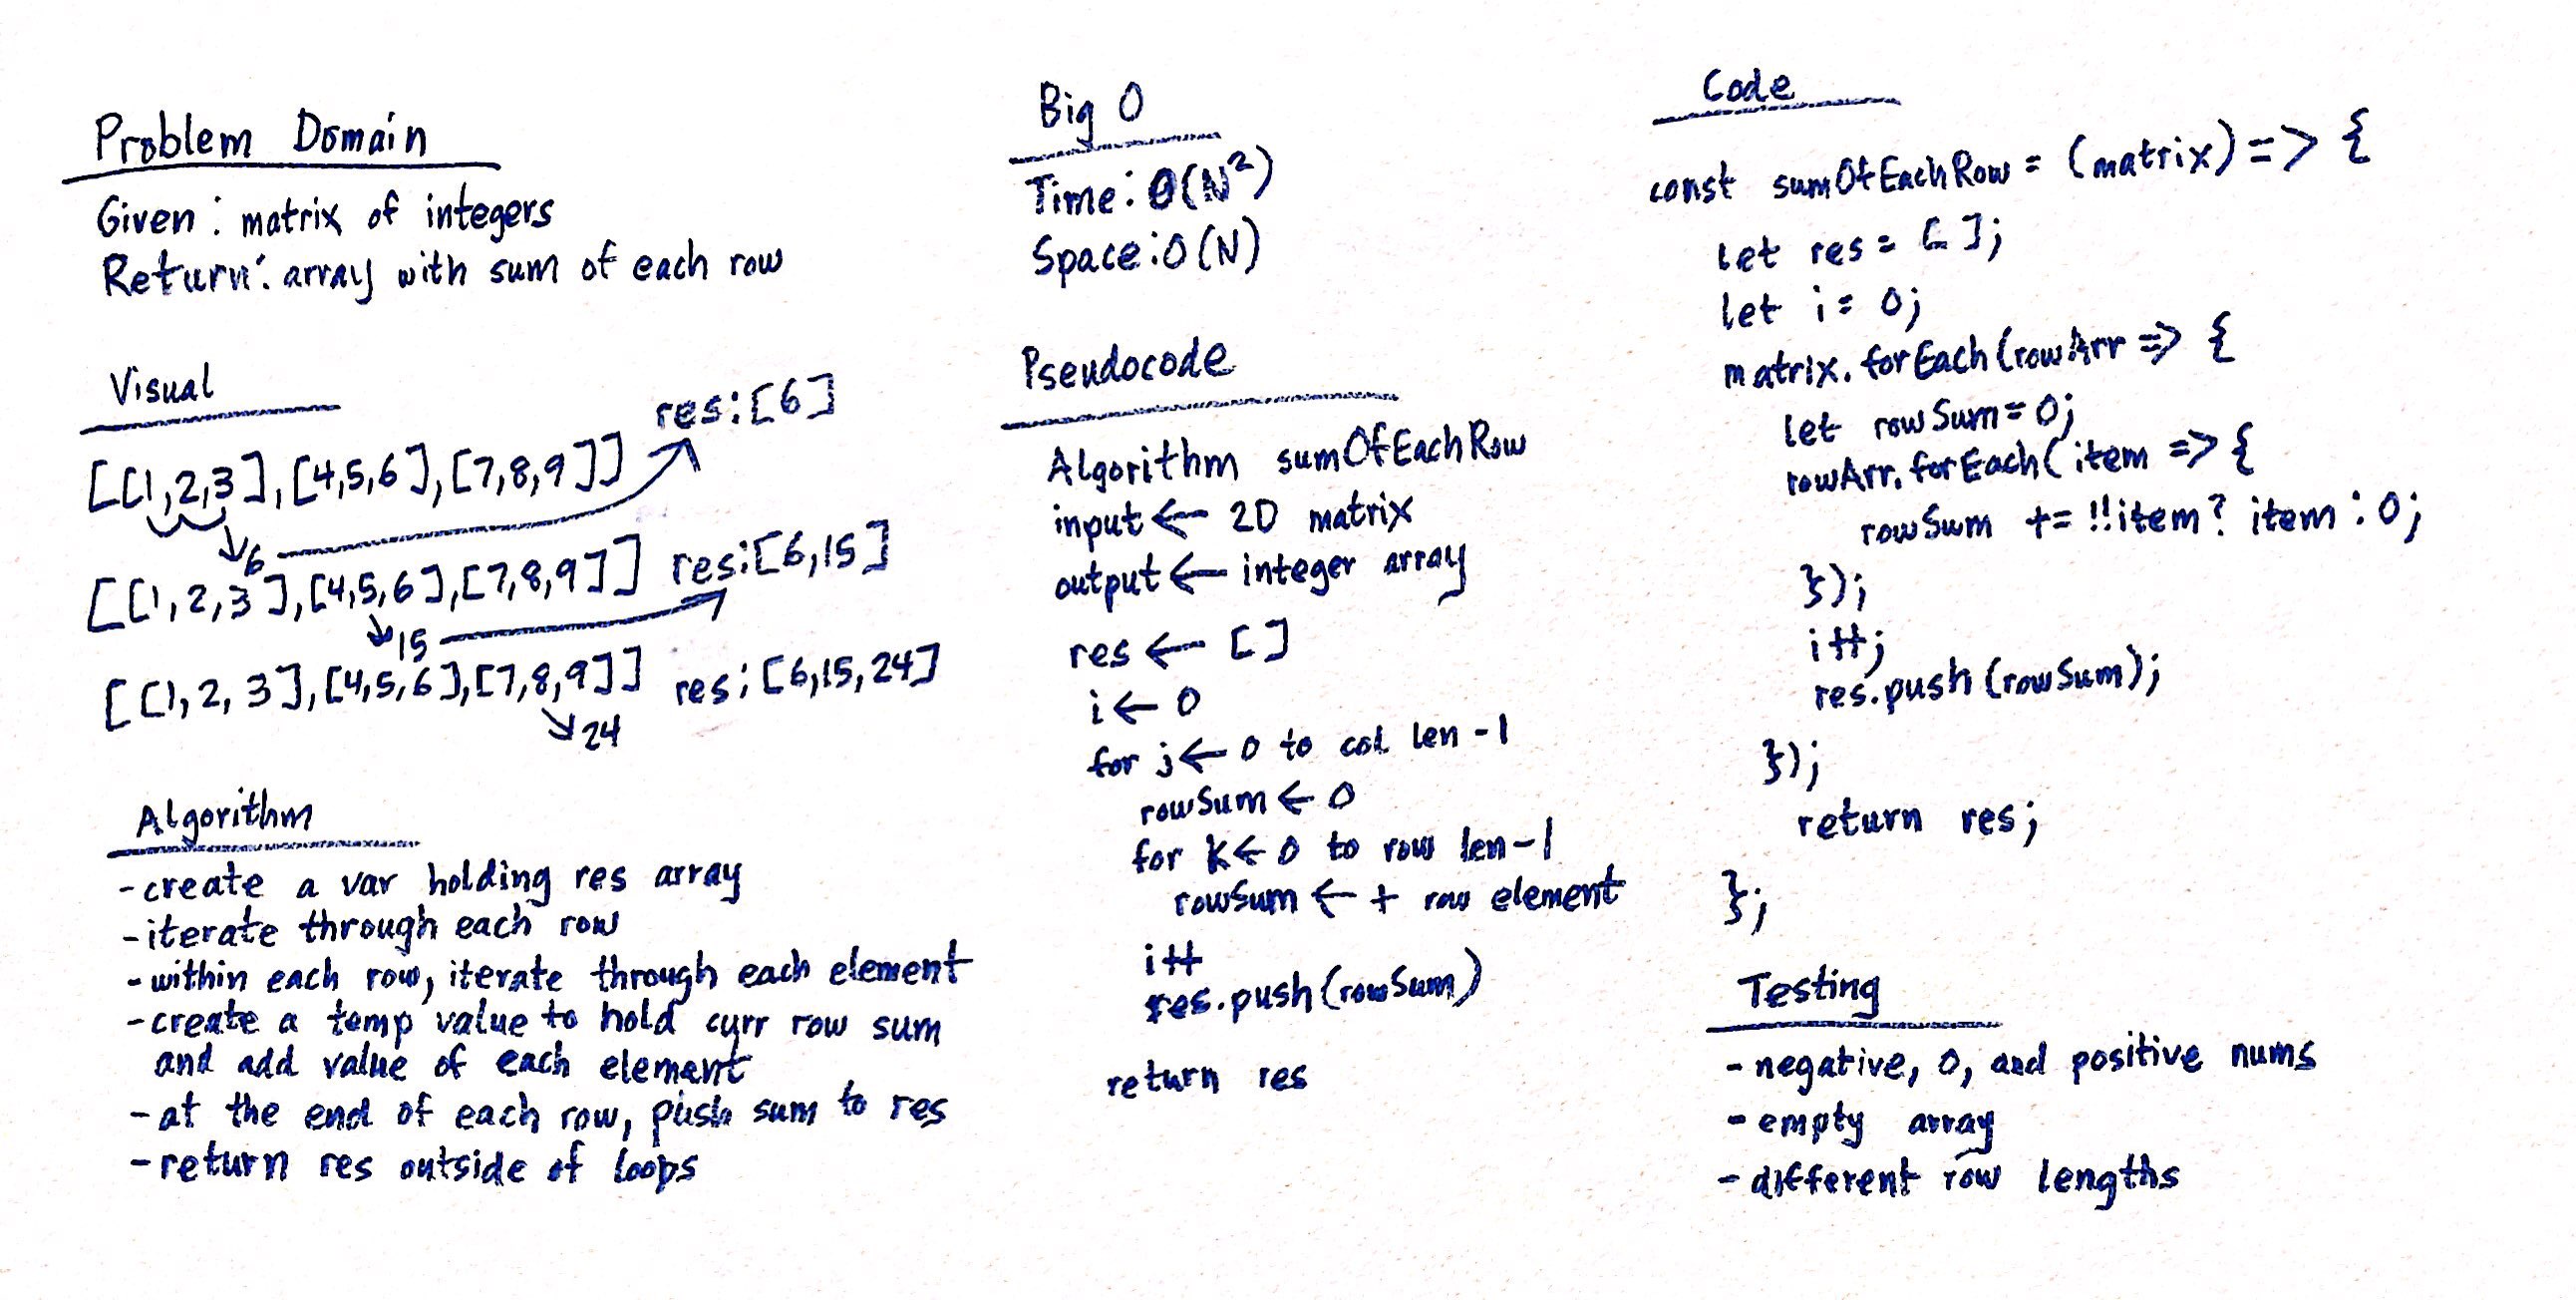 Problem Domain
Given: matrix of integers
Return: array with sum of each row
Visual
[[1,2,3],[4,5,6],[7,8,9]] res:[6]
6
[[1,2,3],[4,5,6],[7,8,9]] res:[6,15]
15
[[1,2,3],[4,5,6],[7,8,9]] res:[6,15,24]
24
Algorithm
-create a var holding res array
-iterate through each row
-within each row, iterate through each element
-create a temp value to hold curr row sum
and add value of each element
-at the end of each row, push sum to res
-return res outside of loops
Big O
Time: O(N²)
Space: O(N)
Pseudocode
Algorithm sumOfEachRow
input ← 2D matrix
output ← integer array
res ← []
i ← 0
for j ← 0 to col len -1
rowSum ← 0
for k ← 0 to row len -1
rowSum ← + row element
i++
res.push(rowSum)
return res
Code
const sumOfEachRow = (matrix) => {
let res = [];
let i = 0;
matrix.forEach(rowArr => {
let rowSum = 0;
rowArr.forEach(item => {
rowSum += !!item? item : 0;
});
i++;
res.push(rowSum);
});
return res;
};
Testing
- negative, 0, and positive nums
- empty array
- different row lengths